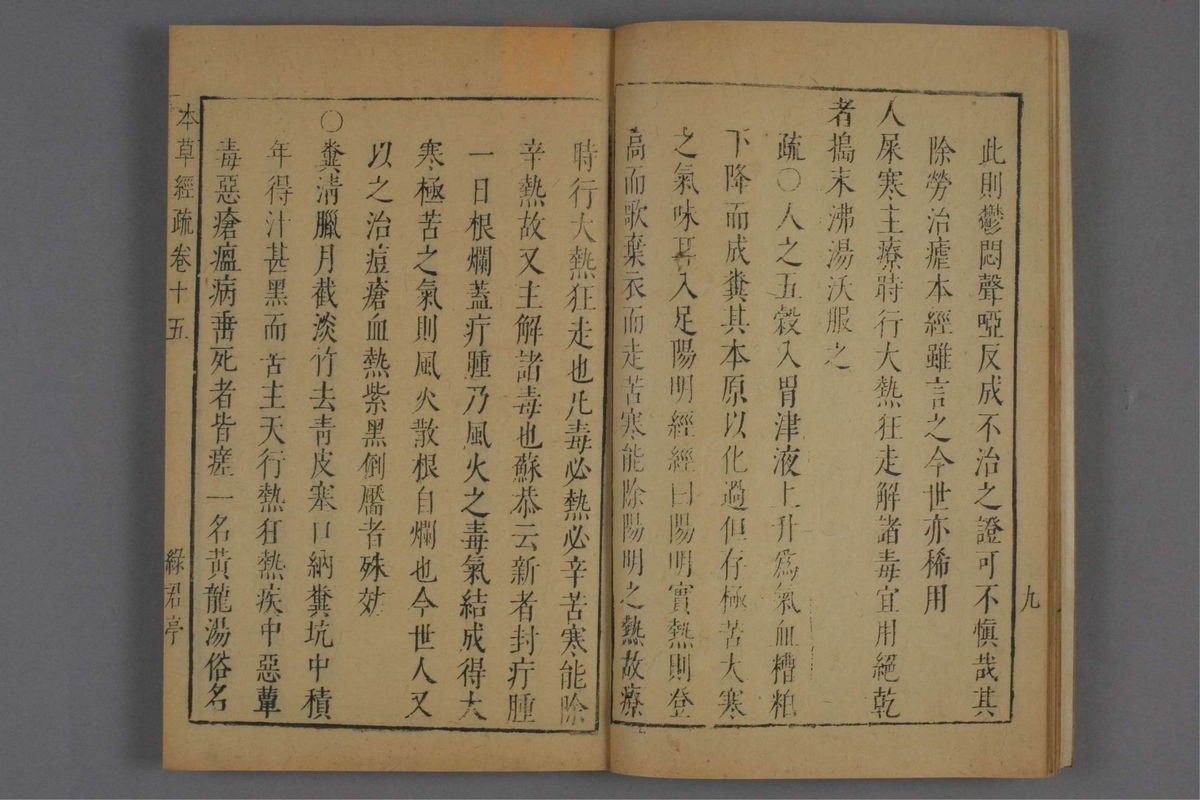 此則鬱悶聲啞反成不治之證可不慎哉其
除勞治瘧本經雖言之今世亦稀用
人屎寒主療時行大熱狂走解諸毒宜用絕乾
者搗末沸湯沃服之
疏○人之五穀入胃津液上升爲氣血糟粕
下降而成糞其本原以化過但存極苦大寒
之氣味耳入足陽明經經曰陽明實熱則登
高而歌棄衣而走苦寒能除陽明之熱故療
九
時行大熱狂走也凡毒必熱必辛苦寒能除
辛熱故又主解諸毒也蘇恭云新者封疔腫
一日根爛蓋疔腫乃風火之毒氣結成得大
寒極苦之氣則風火散根自爛也今世人又
以之治痘瘡血熱紫黑倒靨者殊效
○糞清臘月截淡竹去靑皮塞口納糞坑中積
年得汁甚黑而苦主天行熱狂熱疾中惡蕈
毒惡瘡瘟病垂死者皆瘥一名黃龍湯俗名
本草經疏卷十五
綠君亭